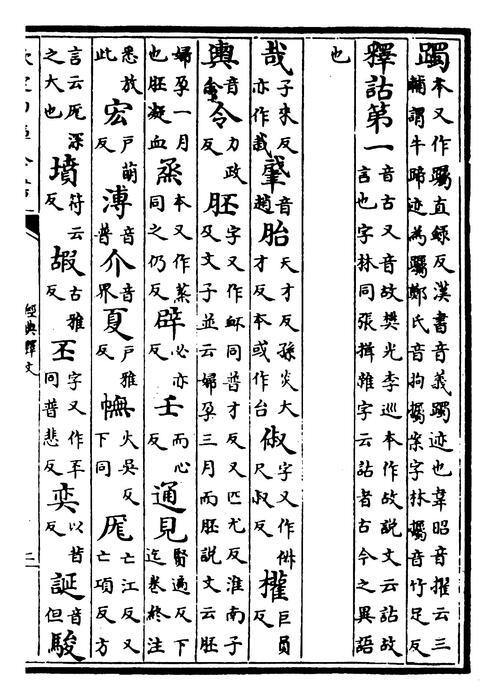 躅本又作躅直録反漢書音義躅迹也韋昭音擢云三輔謂牛蹄迹為躅鄭氏音拘躅案字林躅音竹足反
釋詁第一音古又音故樊光李巡本作故說文云詁故言也字林同張揖雜字云詁者古今之異語
也
哉子來反亦作𢦏肈音趙胎天才反孫炎大才反本或作台俶字又作㑐尺叔反權巨員反
輿音餘令力政反胚字又作衃同普才反又匹尤反淮南子及文子並云婦孕三月而胚說文云胚
婦孕一月也胚凝血烝本又作蒸同之仍反辟必亦反壬而心反通見賢遍反下迄卷終注
悉放此宏户萌反溥音普介音界夏户雅反幠火吳反下同厖亡江反又亡項反方
言云厖深之大也墳符云反嘏古雅反丕字又作㔻同普悲反奕以昔反誕音但駿
經典釋文
二